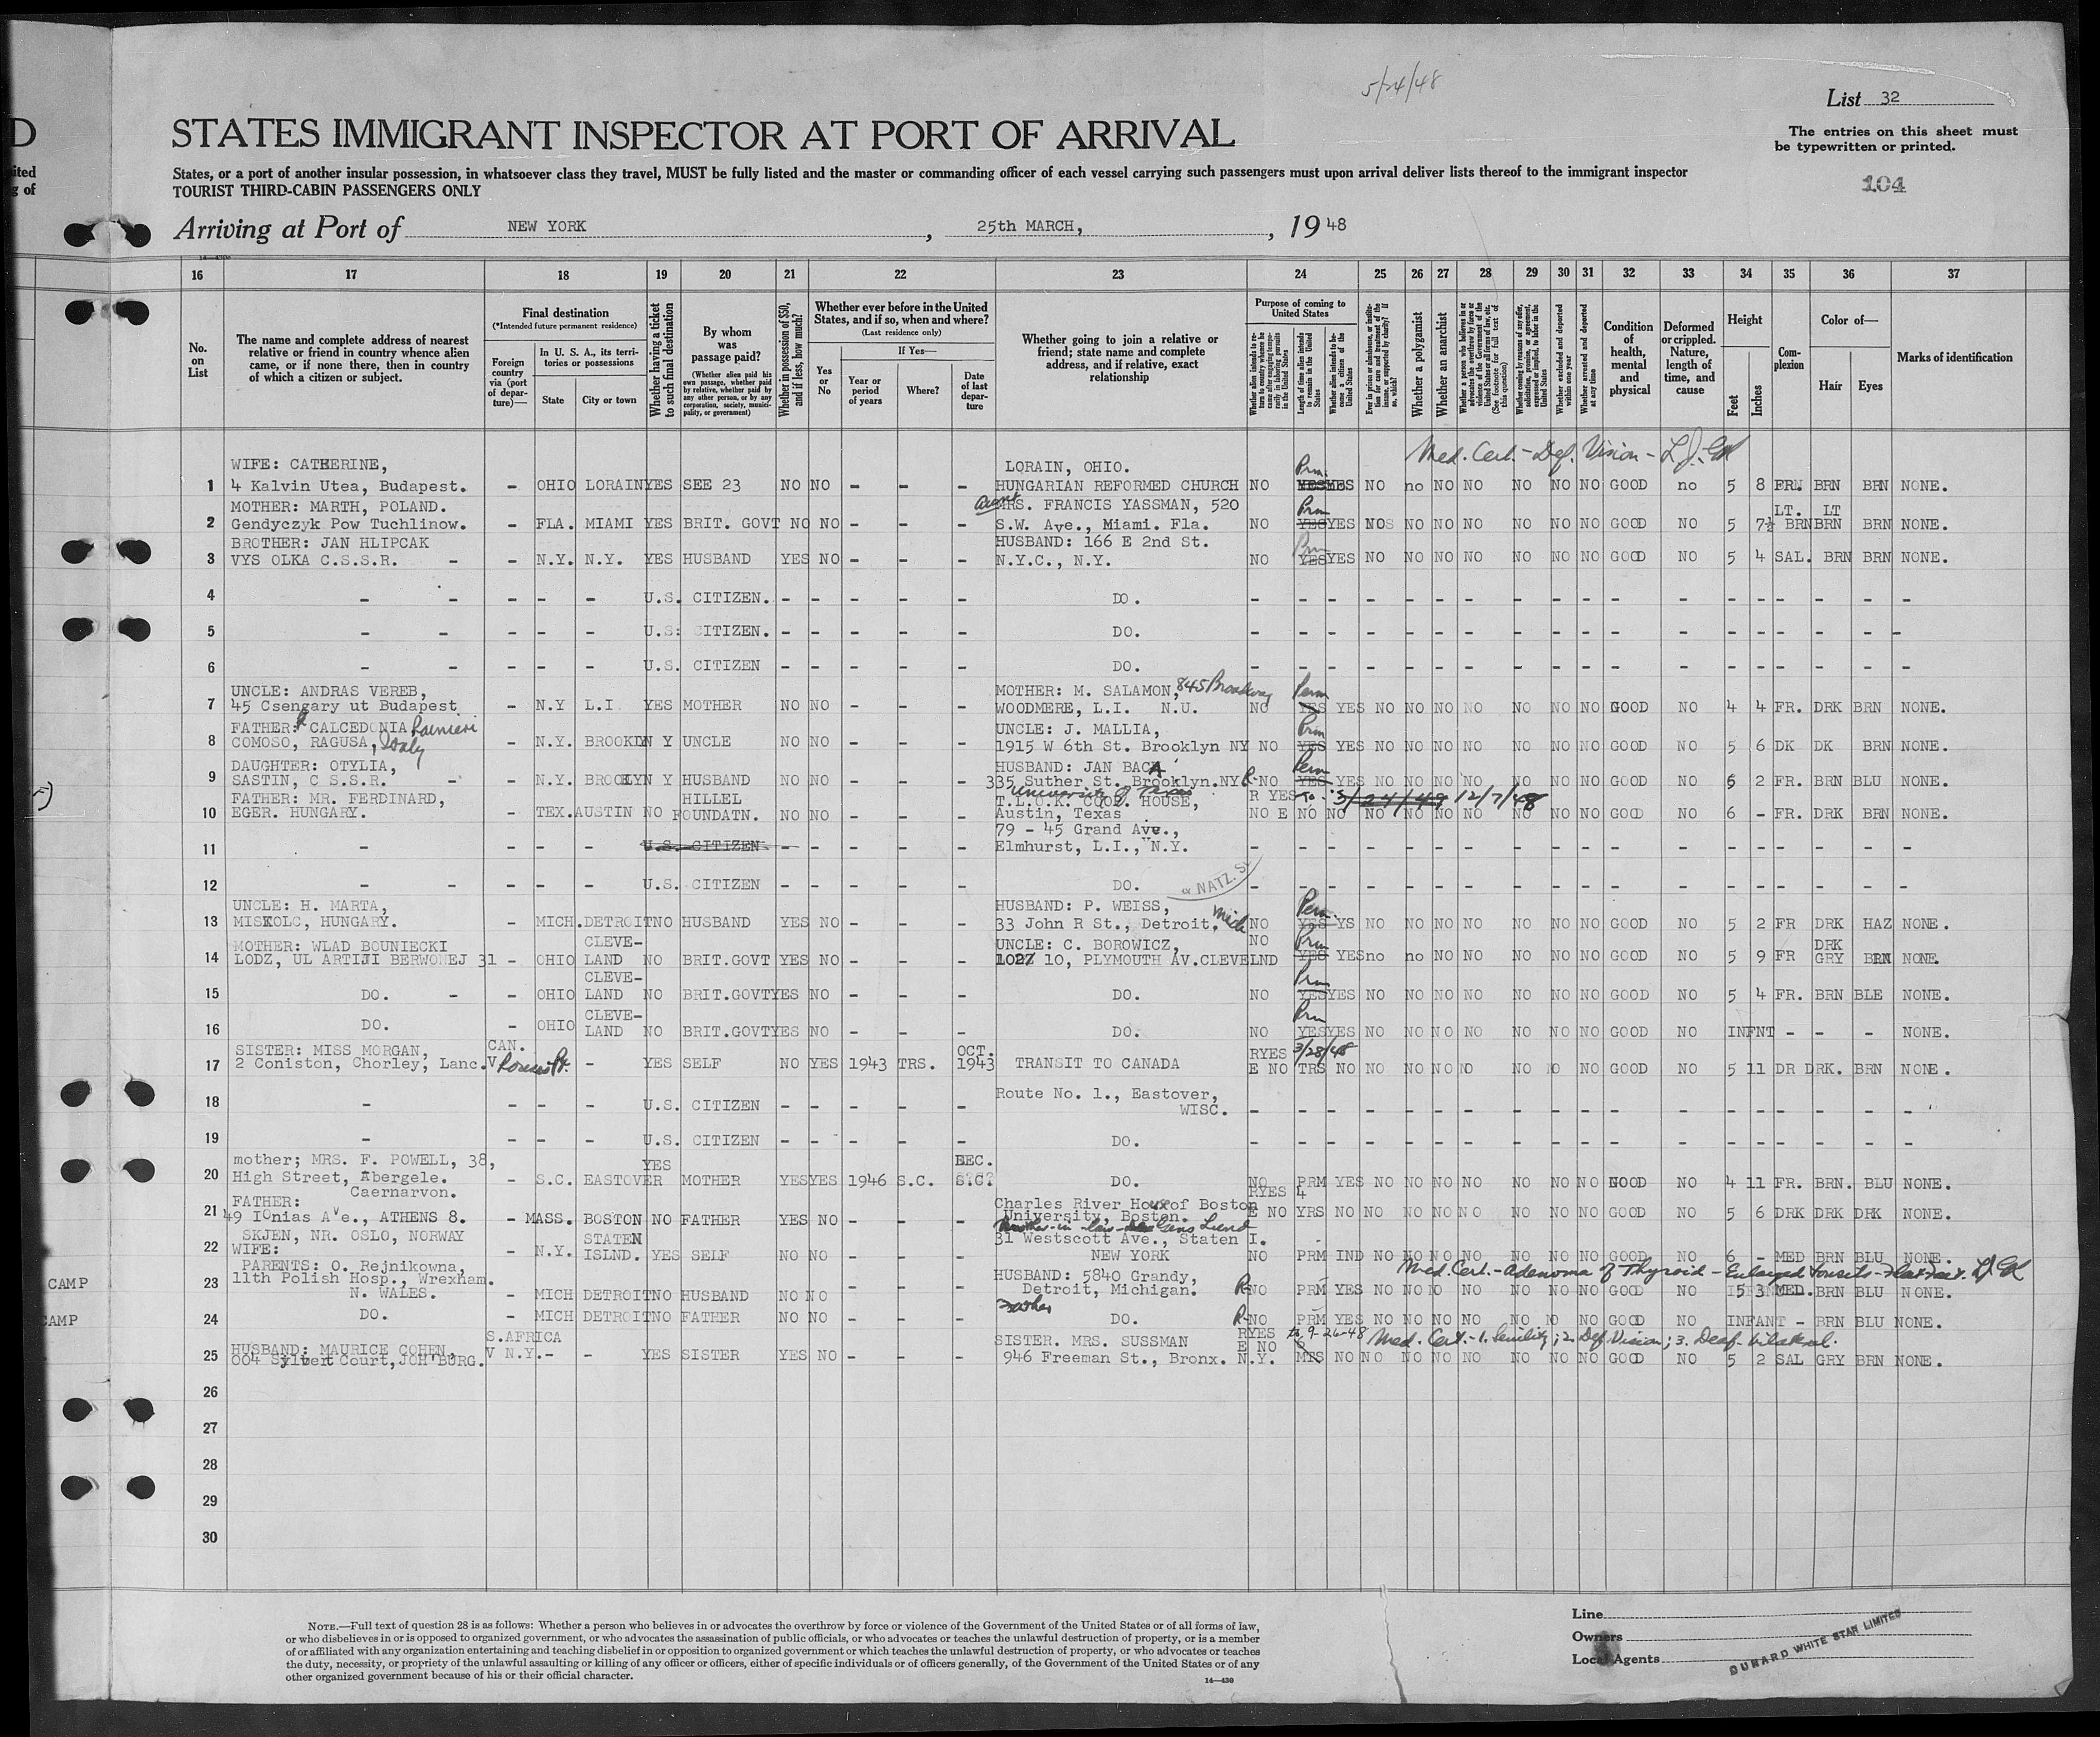 5/24/48
List 32
D
STATES IMMIGRANT INSPECTOR AT PORT OF ARRIVAL
The entries on this sheet must
be typewritten or printed.
ited
g of
States, or a port of another insular possession, in whatsoever class they travel, MUST be fully listed and the master or commanding officer of each vessel carrying such passengers must upon arrival deliver lists thereof to the immigrant inspector
TOURIST THIRD-CABIN PASSENGERS ONLY
104
Arriving at Port of NEW YORK, 25th MARCH, 1948
16 17 18 19 20 21 22 23 24 25 26 27 28 29 30 31 32 33 34 35 36 37
No. on List
The name and complete address of nearest relative or friend in country whence alien came, or if none there, then in country of which a citizen or subject.
Final destination
(*Intended future permanent residence)
Foreign country via (port of departure)—
In U. S. A., its territories or possessions
State
City or town
Whether having a ticket to such final destination
By whom was passage paid?
(Whether alien paid his own passage, whether paid by relative, whether paid by any other person, or by any corporation, society, municipality, or government)
Whether in possession of $50, and if less, how much?
Whether ever before in the United States, and if so, when and where?
(Last residence only)
Yes or No
If Yes—
Year or period of years
Where?
Date of last departure
Whether going to join a relative or friend; state name and complete address, and if relative, exact relationship
Purpose of coming to United States
Length of time alien intends to remain in the United States
Whether alien intends to become a citizen of the United States
Whether a polygamist
Whether an anarchist
Whether excluded and deported within one year
Whether arrested and deported at any time
Condition of health, mental and physical
Deformed or crippled. Nature, length of time, and cause
Height
Feet
Inches
Complexion
Color of—
Hair
Eyes
Marks of identification
Med. Cert. - Def. Vision -
WIFE: CATHERINE, LORAIN, OHIO. Prm.
1 4 Kalvin Utea, Budapest. - OHIO LORAIN YES SEE 23 NO NO - - - HUNGARIAN REFORMED CHURCH NO YES YES NO no NO NO NO NO NO GOOD no 5 8 FR. BRN BRN NONE.
MOTHER: MARTH, POLAND. aunt MRS. FRANCIS YASSMAN, 520 Prm LT. LT
2 Gendyczyk Pow Tuchlinow. - FLA. MIAMI YES BRIT. GOVT NO NO - - - S.W. Ave., Miami. Fla. NO YES YES NOS NO NO NO NO NO NO GOOD NO 5 7½ BRN BRN BRN NONE.
BROTHER: JAN HLIPCAK HUSBAND: 166 E 2nd St. Prm
3 VYS OLKA C.S.S.R. - - N.Y. N.Y. YES HUSBAND YES NO - - - N.Y.C., N.Y. NO YES YES NO NO NO NO NO NO NO GOOD NO 5 4 SAL. BRN BRN NONE.
4 - - - - - U.S. CITIZEN. - - - - - DO. - - - - - - - - - - - - - - - - - -
5 - - - - - U.S: CITIZEN. - - - - - DO. - - - - - - - - - - - - - - - - - -
6 - - - - - U.S. CITIZEN - - - - - DO. - - - - - - - - - - - - - - - - - -
UNCLE: ANDRAS VEREB, MOTHER: M. SALAMON, 845 Broadway Perm
7 45 Csengary ut Budapest - N.Y L.I YES MOTHER NO NO - - - WOODMERE, L.I. N.U. NO YES YES NO NO NO NO NO NO NO GOOD NO 4 4 FR. DRK BRN NONE.
FATHER: CALCEDONIA Rainieri UNCLE: J. MALLIA, Prm
8 COMOSO, RAGUSA, Italy - N.Y. BROOKLYN Y UNCLE NO NO - - - 1915 W 6th St. Brooklyn NY NO YES YES NO NO NO NO NO NO NO GOOD NO 5 6 DK DK BRN NONE.
DAUGHTER: OTYLIA, HUSBAND: JAN BACA Perm
9 SASTIN, C S.S.R. - - N.Y. BROOKLYN Y HUSBAND NO NO - - - 335 Suther St. Brooklyn.NY R-NO YES YES NO NO NO NO NO NO NO GOOD NO 5 2 FR. BRN BLU NONE.
University of Texas
FATHER: MR. FERDINARD, HILLEL T.L.O.K. COOP. HOUSE, R YES To - 3/24/49 12/7/48
10 EGER. HUNGARY. - TEX. AUSTIN NO FOUNDATN. NO NO - - - Austin, Texas NO E NO NO NO NO NO NO NO NO NO GOOD NO 6 - FR. DRK BRN NONE.
79 - 45 Grand Ave.,
11 - - - - U.S. CITIZEN - - - - - Elmhurst, L.I., N.Y. - - - - - - - - - - - - - - - - - -
12 - - - - - U.S. CITIZEN - - - - - DO. NATZ. - - - - - - - - - - - - - - - - - -
UNCLE: H. MARTA, HUSBAND: P. WEISS, Perm.
13 MISKOLC, HUNGARY. - MICH. DETROIT NO HUSBAND YES NO - - - 33 John R St., Detroit, Mich NO YES YS NO NO NO NO NO NO NO GOOD NO 5 2 FR DRK HAZ NONE.
MOTHER: WLAD BOUNIECKI CLEVE- UNCLE: C. BOROWICZ, NO Prm DRK
14 LODZ, UL ARTIJI BERWONEJ 31 - OHIO LAND NO BRIT.GOVT YES NO - - - 1027 10, PLYMOUTH AV.CLEVELND YES YES no no NO NO NO NO NO GOOD NO 5 9 FR GRY BRN NONE.
CLEVE- Prm
15 DO. - - OHIO LAND NO BRIT.GOVT YES NO - - - DO. NO YES YES NO NO NO NO NO NO NO GOOD NO 5 4 FR. BRN BLE NONE.
CLEVE- Prm
16 DO. - OHIO LAND NO BRIT.GOVT YES NO - - - DO. NO YES YES NO NO NO NO NO NO NO GOOD NO INFNT - - - NONE.
SISTER: MISS MORGAN, CAN. OCT. RYES 3/28/48
17 2 Coniston, Chorley, Lanc. V Rouses Pt. - YES SELF NO YES 1943 TRS. 1943 TRANSIT TO CANADA E NO TRS NO NO NO NO NO NO NO NO GOOD NO 5 11 DR DRK. BRN NONE.
Route No. 1., Eastover,
18 - - - - U.S. CITIZEN - - - - - WISC. - - - - - - - - - - - - - - - - - -
19 - - - - U.S. CITIZEN - - - - - DO. - - - - - - - - - - - - - - - - - -
mother; MRS. F. POWELL, 38, YES DEC.
20 High Street, Abergele. - S.C. EASTOVER MOTHER YES YES 1946 S.C. DO. NO PRM YES NO NO NO NO NO NO NO GOOD NO 4 11 FR. BRN. BLU NONE.
Caernarvon.
FATHER: Charles River House of Boston RYES 4
21 49 IOnias Ave., ATHENS 8. - MASS. BOSTON NO FATHER YES NO - - - University, Boston. E NO YRS NO NO NO NO NO NO NO NO GOOD NO 5 6 DRK DRK DRK NONE.
SKJEN, NR. OSLO, NORWAY STATEN 31 Westscott Ave., Staten I.
22 WIFE: - N.Y. ISLND. YES SELF NO NO - - - NEW YORK NO PRM IND NO NO NO NO NO NO NO GOOD NO 6 - MED BRN BLU NONE.
Med. Cert. - Adenoma of Thyroid - Enlarged tonsils - Flat Feet.
PARENTS: O. Rejnikowna,
CAMP 23 11th Polish Hosp., Wrexham. HUSBAND: 5840 Grandy,
N. WALES. - MICH DETROIT NO HUSBAND NO NO - - - Detroit, Michigan. R-NO PRM YES NO NO NO NO NO NO NO GOOD NO 5 3 MED. BRN BLU NONE.
Father
CAMP 24 DO. - MICH DETROIT NO FATHER NO NO - - - DO. R-NO PRM YES NO NO NO NO NO NO NO GOOD NO INFANT - BRN BLU NONE.
S.AFRICA SISTER. MRS. SUSSMAN RYES to 9-26-48 Med. Cert. - 1. Senility; 2. Def. Vision; 3. Deaf - bilateral.
HUSBAND: MAURICE COHEN, E NO 6
25 004 Sylvert Court, JOH'BURG. V N.Y. - - YES SISTER YES NO - - - 946 Freeman St., Bronx. N.Y. MTS NO NO NO NO NO NO NO NO GOOD NO 5 2 SAL GRY BRN NONE.
26
27
28
29
30
NOTE.—Full text of question 28 is as follows: Whether a person who believes in or advocates the overthrow by force or violence of the Government of the United States or of all forms of law,
or who disbelieves in or is opposed to organized government, or who advocates the assassination of public officials, or who advocates or teaches the unlawful destruction of property, or is a member
of or affiliated with any organization entertaining and teaching disbelief in or opposition to organized government or which teaches the unlawful destruction of property, or who advocates or teaches
the duty, necessity, or propriety of the unlawful assaulting or killing of any officer or officers, either of specific individuals or of officers generally, of the Government of the United States or of any
other organized government because of his or their official character.
14—430
Line
Owners
Local Agents
CUNARD WHITE STAR LIMITED